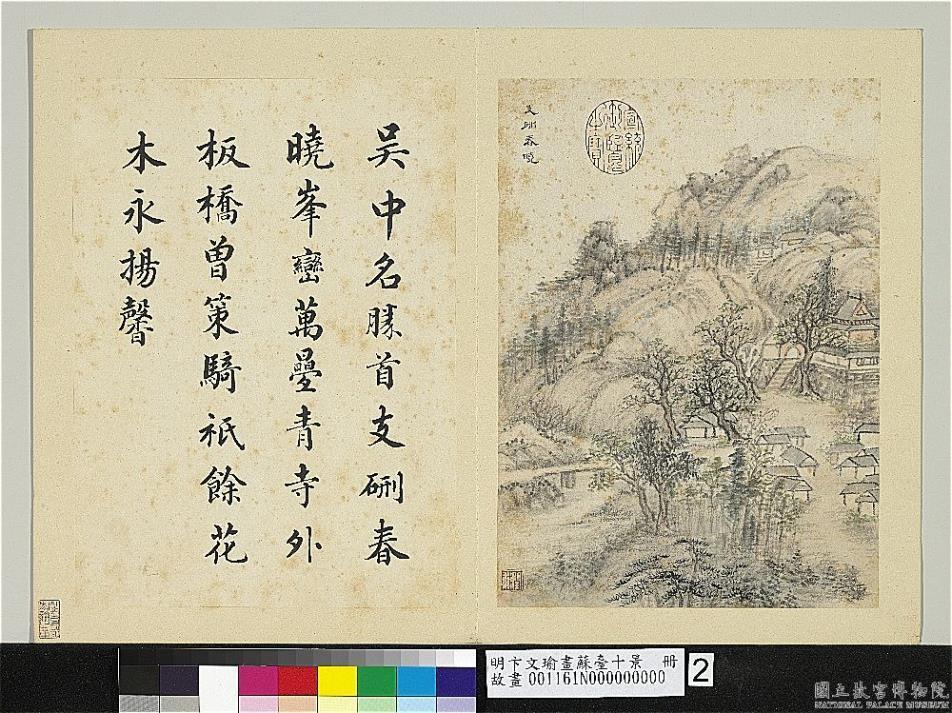 吳中名勝首支硎春
曉峯巒萬疊青寺外
板橋曾策騎祇餘花
木永揚馨
支硎春曉
明卞文瑜畫蘇臺十景 冊
故畫001161N000000000
2
國立故宮博物院
NATIONAL PALACE MUSEUM